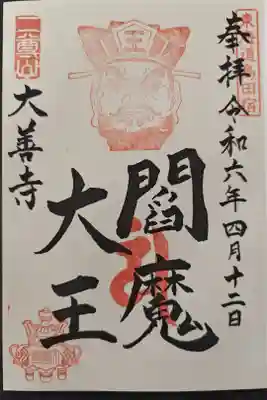 奉拝 令和六年四月十二日
閻魔
大王
大善寺
王